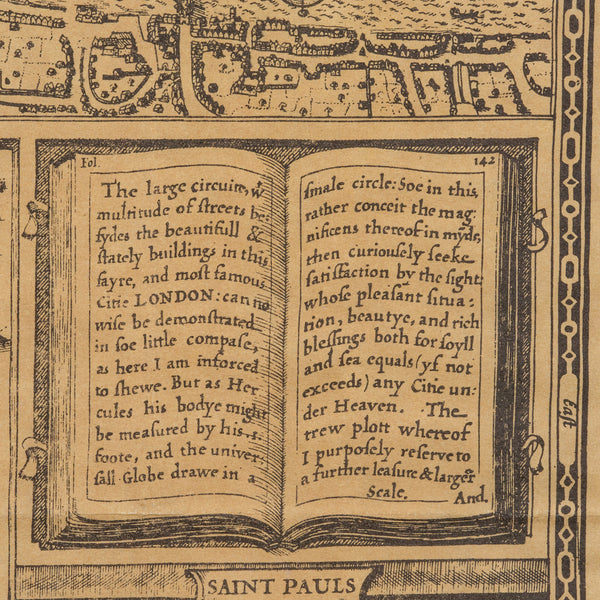 Fol.
The large circuite, w
multitude of ſtreets be:
ſydes the beautifull &
ſtately buildings in this
fayre, and moſt famous
Citie LONDON: can no
wiſe be demonſtrated
in ſoe little compaſe,
as here I am inforced
to ſhewe. But as Her
cules his bodye might
be meaſured by his
foote, and the univer:
ſall Globe drawe in a
142
ſmale circle: Soe in this,
rather conceit the mag:
nificens thereof in mynde,
then curiouſely ſeeke
ſatiſfaction by the ſight:
whoſe pleaſant ſitua:
tion, beautye, and rich
bleſſings both for ſoyll
and ſea equals (yf not
exceeds) any Citie un:
der Heaven. The
trew plott whereof
I purpoſely reſerve to
a further leaſure & larger
Scale. And.
Eaſt
SAINT PAULS